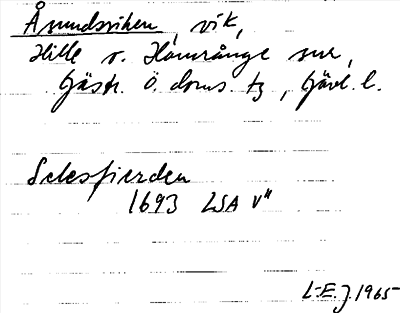 Åsundsviken, vik,
Hille o. Hamrånge snr,
Gästr. Ö. doms. tg, Gävl. l.
Selesfierden
1693 LSA V"
L-E. J. 1965